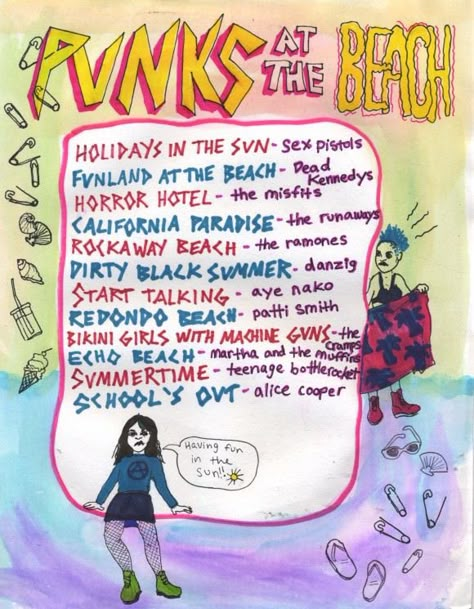 PUNKS AT THE BEACH
HOLIDAYS IN THE SUN - Sex Pistols
FUNLAND AT THE BEACH - Dead Kennedys
HORROR HOTEL - the misfits
CALIFORNIA PARADISE - the runaways
ROCKAWAY BEACH - the ramones
DIRTY BLACK SUMMER - danzig
START TALKING - aye nako
REDONDO BEACH - patti smith
BIKINI GIRLS WITH MACHINE GUNS - the cramps
ECHO BEACH - martha and the muffins
SUMMERTIME - teenage bottlerocket
SCHOOL'S OUT - alice cooper
Having fun
in the
sun!!